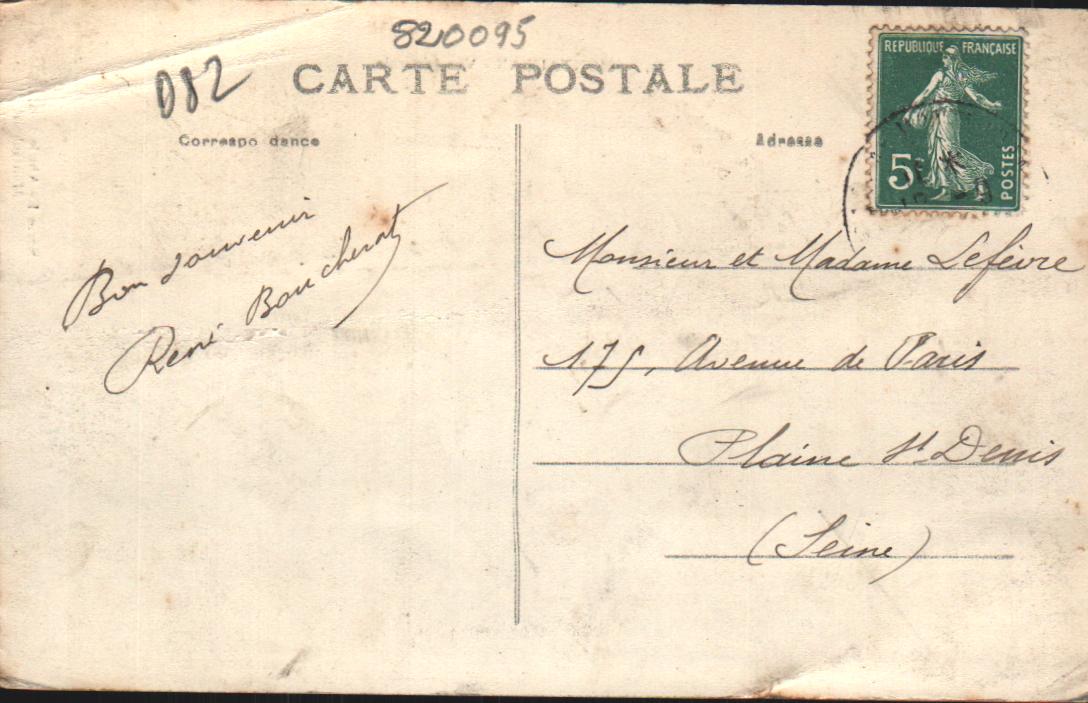 820095
D82
CARTE POSTALE
Correspo dance
Adresse
REPUBLIQUE FRANÇAISE
5c
POSTES
Bon souvenir
René Boucherot
Monsieur et Madame Lefèvre
175, Avenue de Paris
Plaine St Denis
(Seine)